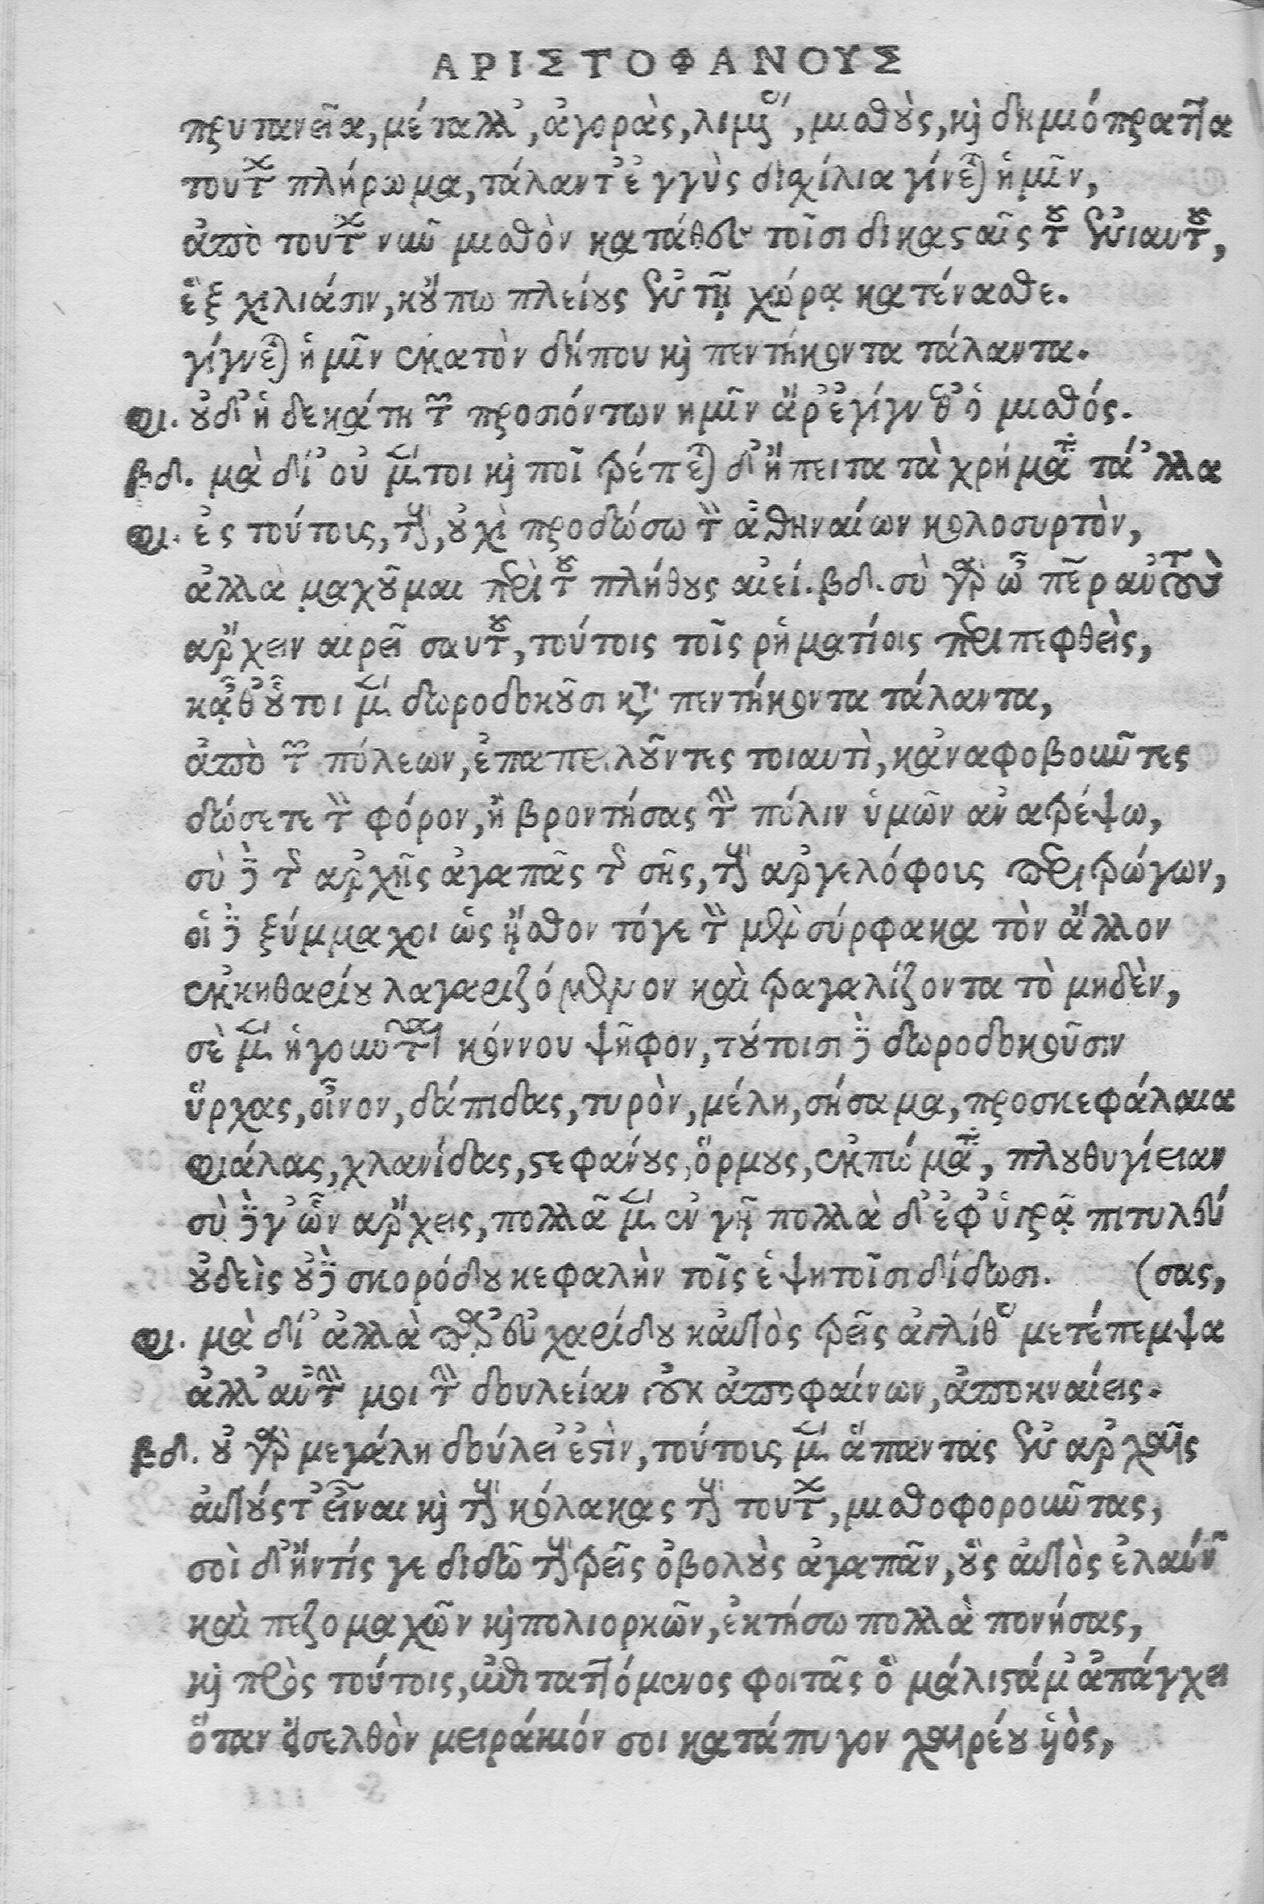 ΑΡΙΣΤΟΦΑΝΟΥΣ
πρυτανεῖα, μέταλλ᾽, ἀγορὰς, λιμένας, μισθὺς, καὶ δημιόπρατα
τούτων πλήρωμα, τάλαντ᾽ ἐγγὺς διχίλια γίνεται ἡμῖν,
ἀπὸ τούτων νιῦ μισθὸν κατάθες τοῖσι δικασαῖς τοῦ ἐνιαυτοῦ,
ἓξ χιλιάσιν, κοὔπω πλείους ἐν τῇ χώρᾳ κατένασθε.
γίγνεται ἡμῖν ἑκατὸν δήπου καὶ πεντήκοντα τάλαντα.
φι. οὐδ᾽ ἡ δεκάτη τῶν προσιόντων ἡμῖν ἄρ᾽ ἐγίγνεθ᾽ ὁ μισθός.
βδ. μὰ δί᾽ οὐ μέντοι καὶ ποῖ τρέπεται δ᾽ ἤπειτα τὰ χρήματα τἄλλα
φι. ἐς τούτοις, τοὺς, οὐχὶ προδώσω τὸν ἀθηναίων κολοσυρτὸν,
ἀλλὰ μαχοῦμαι περὶ τοῦ πλήθους αἰεί. βδ. σὺ γὰρ ὦ πάτερ αὐτοὺς
ἄρχειν αἱρεῖ σαυτοῦ, τούτοις τοῖς ῥηματίοις περιπεφθεὶς,
κᾆθ᾽ οὗτοι μὲν δωροδοκοῦσι κατὰ πεντήκοντα τάλαντα,
ἀπὸ τῶν πόλεων, ἐπαπειλοῦντες τοιαυτὶ, κἀναφοβοῦντες
δώσετε τὸν φόρον, ἢ βροντήσας τὴν πόλιν ὑμῶν ἀνατρέψω,
σὺ δὲ τῆς ἀρχῆς ἀγαπᾷς τῆς σῆς, τοὺς ἀργελόφοις περιτρώγων,
οἱ δὲ ξύμμαχοι ὡς ᾔσθοντό γε τὸν μὲν σύρφακα τὸν ἄλλον
ἐκ κηθαρίου λαγαριζόμενον καὶ τραγαλίζοντα τὸ μηδὲν,
σὲ μὲν ἡγοῦνται κόννου ψῆφον, τούτοισι δὲ δωροδοκοῦσιν
ὕρχας, οἶνον, δάπιδας, τυρὸν, μέλη, σήσαμα, προσκεφάλαια
φιάλας, χλανίδας, στεφάνους, ὅρμους, ἐκπώματα, πλουθυγίειαν
σὺ δὲ γ᾽ ὧν ἄρχεις, πολλᾶ μὲν ἐν γῇ πολλὰ δ᾽ ἐφ᾽ ὑγρᾷ πιτυλεύ
οὐδεὶς οὐδὲ σκορόδου κεφαλὴν τοῖς ἑψητοῖσι δίδωσι. (σας,
φι. μὰ δί᾽ ἀλλὰ παρ᾽ εὐχαρίδου καὐτὸς τρεῖς ἀγλίθας μετέπεμψα
ἀλλ᾽ αὐτὴν μοι τὴν δουλείαν οὐκ ἀποφαίνων, ἀποκναίεις.
βδ. οὐ γὰρ μεγάλη δούλει᾽ ἐστὶν, τούτοις μὲν ἅπαντας ἐν ἀρχαῖς
αὐτούς τ᾽ εἶναι καὶ τοὺς κόλακας τοὺς τούτων, μισθοφοροῦντας,
σοὶ δ᾽ ἤντίς γε διδῶ τοὺς τρεῖς ὀβολοὺς ἀγαπᾶν, οὓς αὐτὸς ἐλαύνων
καὶ πεζομαχῶν καὶ πολιορκῶν, ἐκτήσω πολλὰ πονήσας,
καὶ πρὸς τούτοις, ἐπιταττόμενος φοιτᾷς ὃ μάλιστά μ᾽ ἀπάγχει
ὅταν εἰσελθὸν μειράκιόν σοι κατάπυγον χαιρέου ὑὸς,